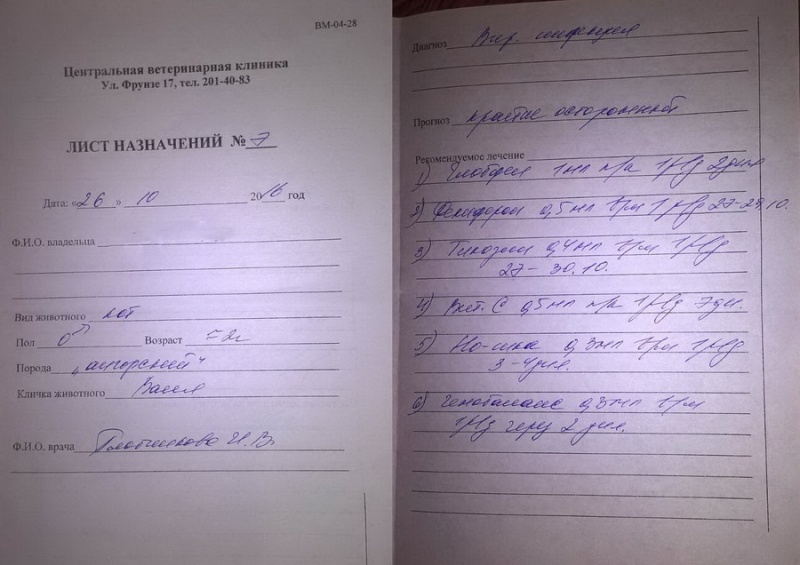 ВМ-04-28
Центральная ветеринарная клиника
Ул. Фрунзе 17, тел. 201-40-83
ЛИСТ НАЗНАЧЕНИЙ № 7
Дата: «26» 10 2016 год
Ф.И.О. владельца
Вид животного кот
Пол ♂ Возраст ≈ 2г
Порода "ангорский"
Кличка животного Вася
Ф.И.О. врача И.В.
Диагноз Вир. инфекция
Прогноз крайне осторожный
Рекомендуемое лечение
1) 1 мл п/к 1р/д 2 дня
2) 0,5 мл в/м 1р/д 27-29.10.
3) 0,4 мл в/м 1р/д
27 - 30.10.
4) Вит. С 0,5 мл п/к 1р/д 7 дн.
5) Но-шпа 0,3 мл в/м 1р/д
3-4 дня.
6) 0,3 мл в/м
1р/д через 2 дня.